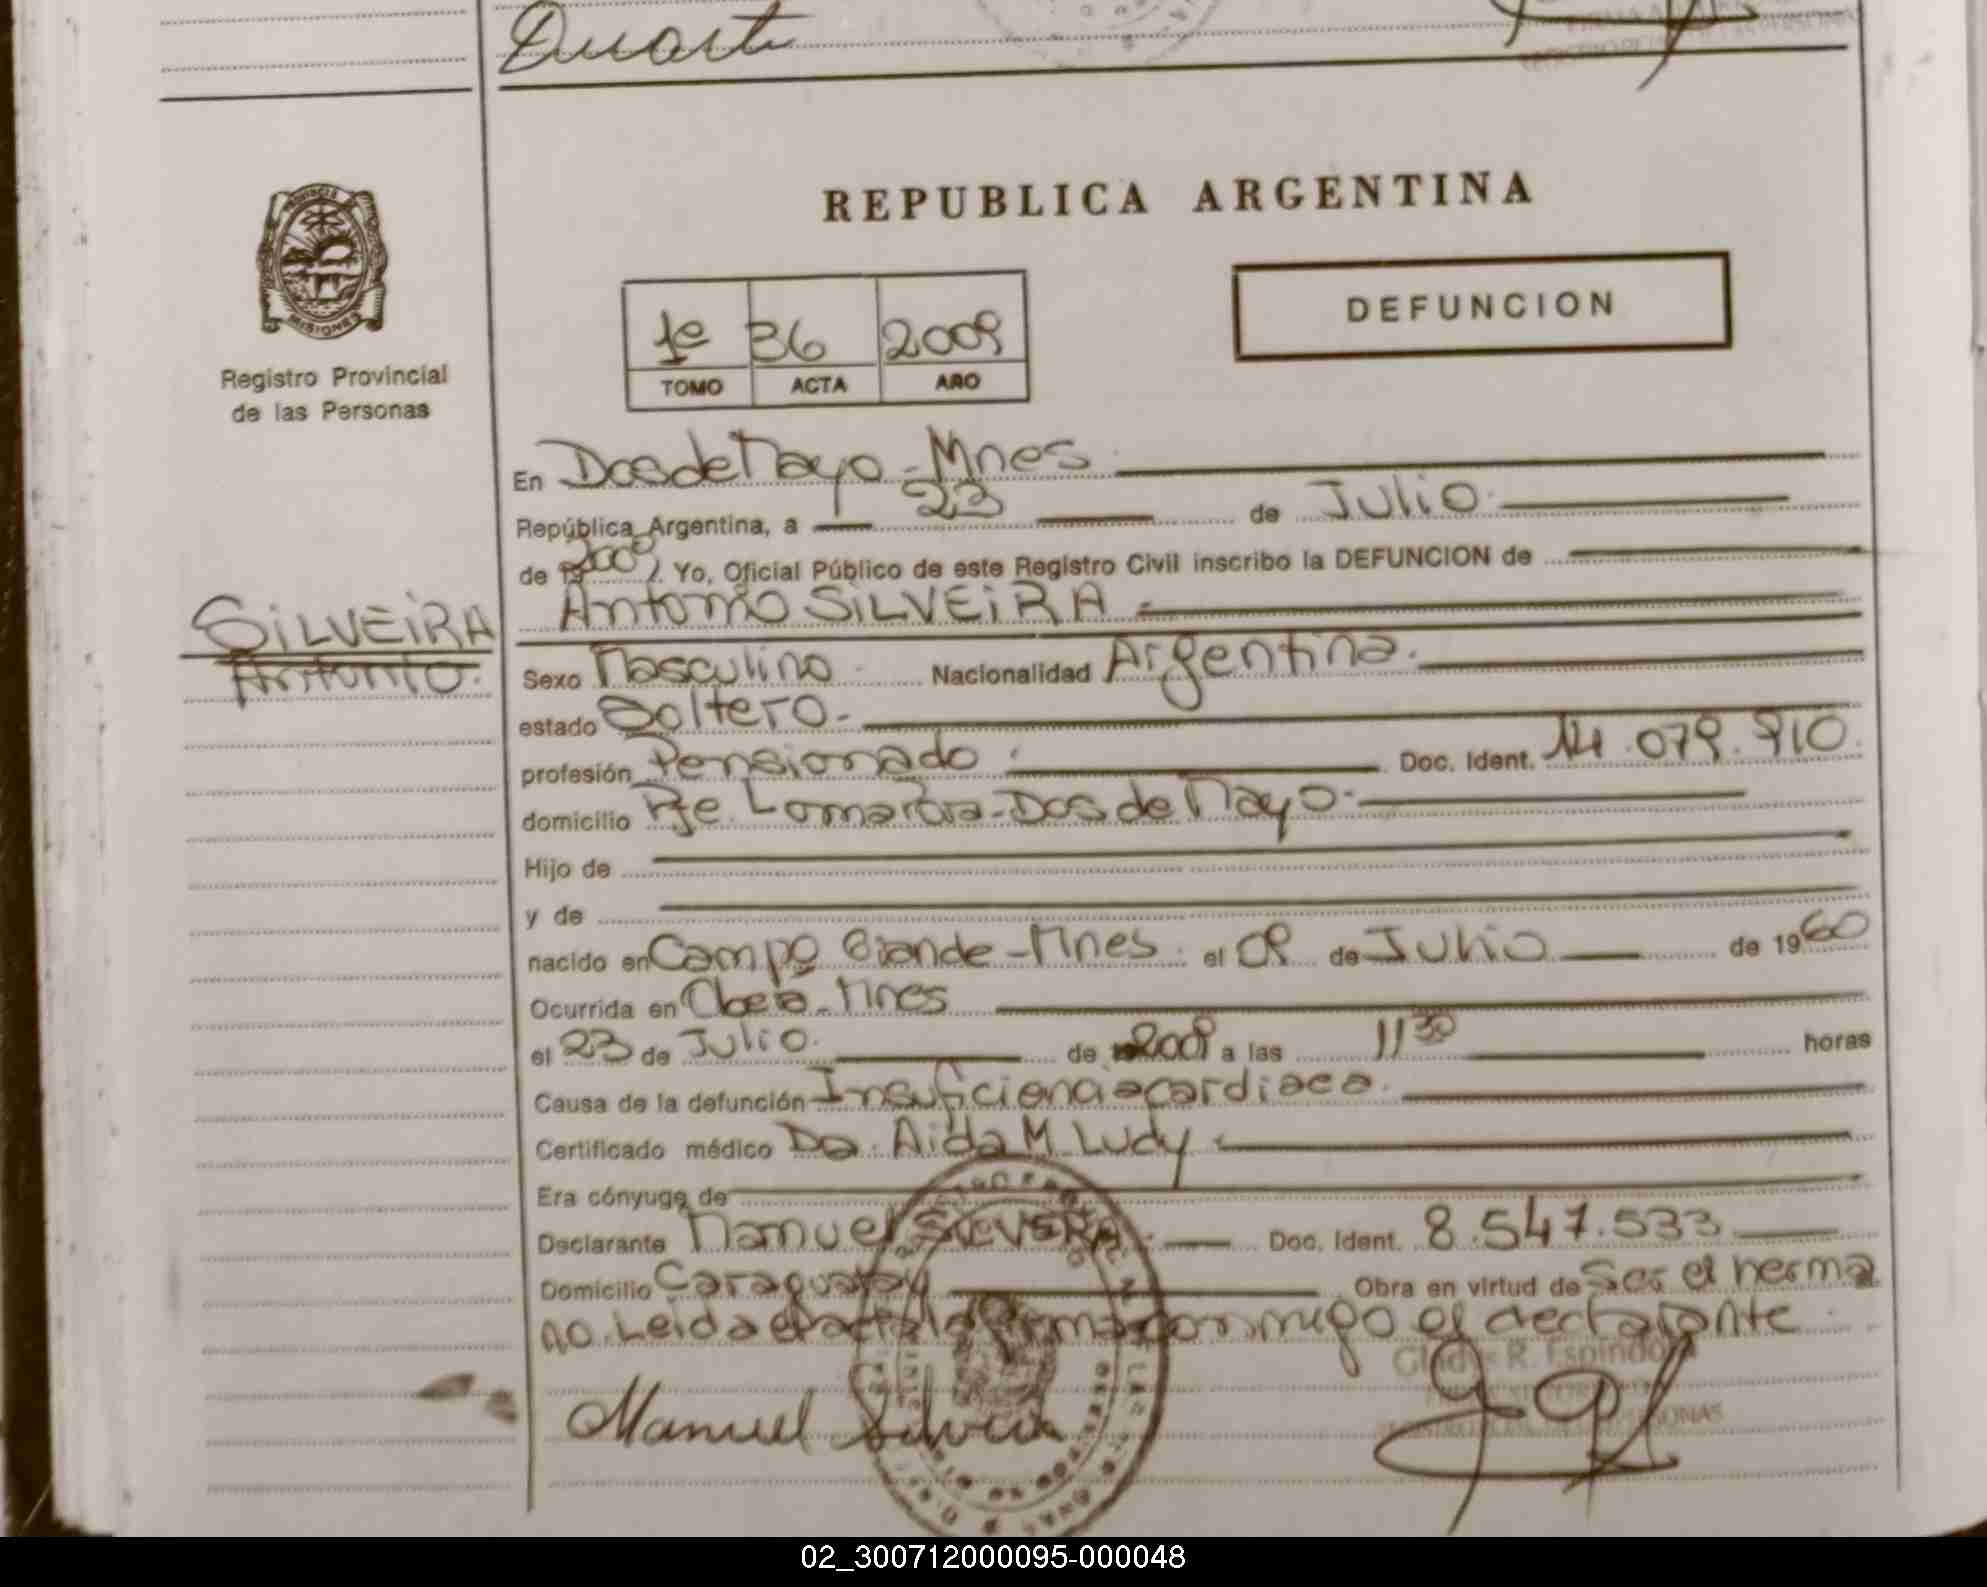 Duarte
REPUBLICA ARGENTINA
PROVINCIA
MISIONES
Registro Provincial
de las Personas
DEFUNCION
1º 36 2009
TOMO ACTA AÑO
En Dos de Mayo - Mnes
República Argentina, a 23 de Julio
de 2009, Yo, Oficial Público de este Registro Civil inscribo la DEFUNCION de
Antonio SILVEIRA
SILVEIRA
Antonio.
Sexo Masculino Nacionalidad Argentina.
estado Soltero.-
profesión Pensionado Doc. Ident. 14.079.910
domicilio Pje. - Dos de Mayo -
Hijo de
y de
nacido en Campo Grande - Mnes. el 09 de Julio de 1960
Ocurrida en Obera - Mnes
el 23 de Julio. de 2009 a las 11 30 horas
Causa de la defunción Insuficiencia cardiaca.
Certificado médico Da. Aida M. Ludy
Era cónyuge de
Declarante Manuel SILVEIRA Doc. Ident. 8.547.533
Domicilio Caraguatay Obra en virtud de Ser el herma
no. Leida el acta la firma conmigo el declarante
Gladys R. Espindola
Manuel Silveira
02_300712000095-000048